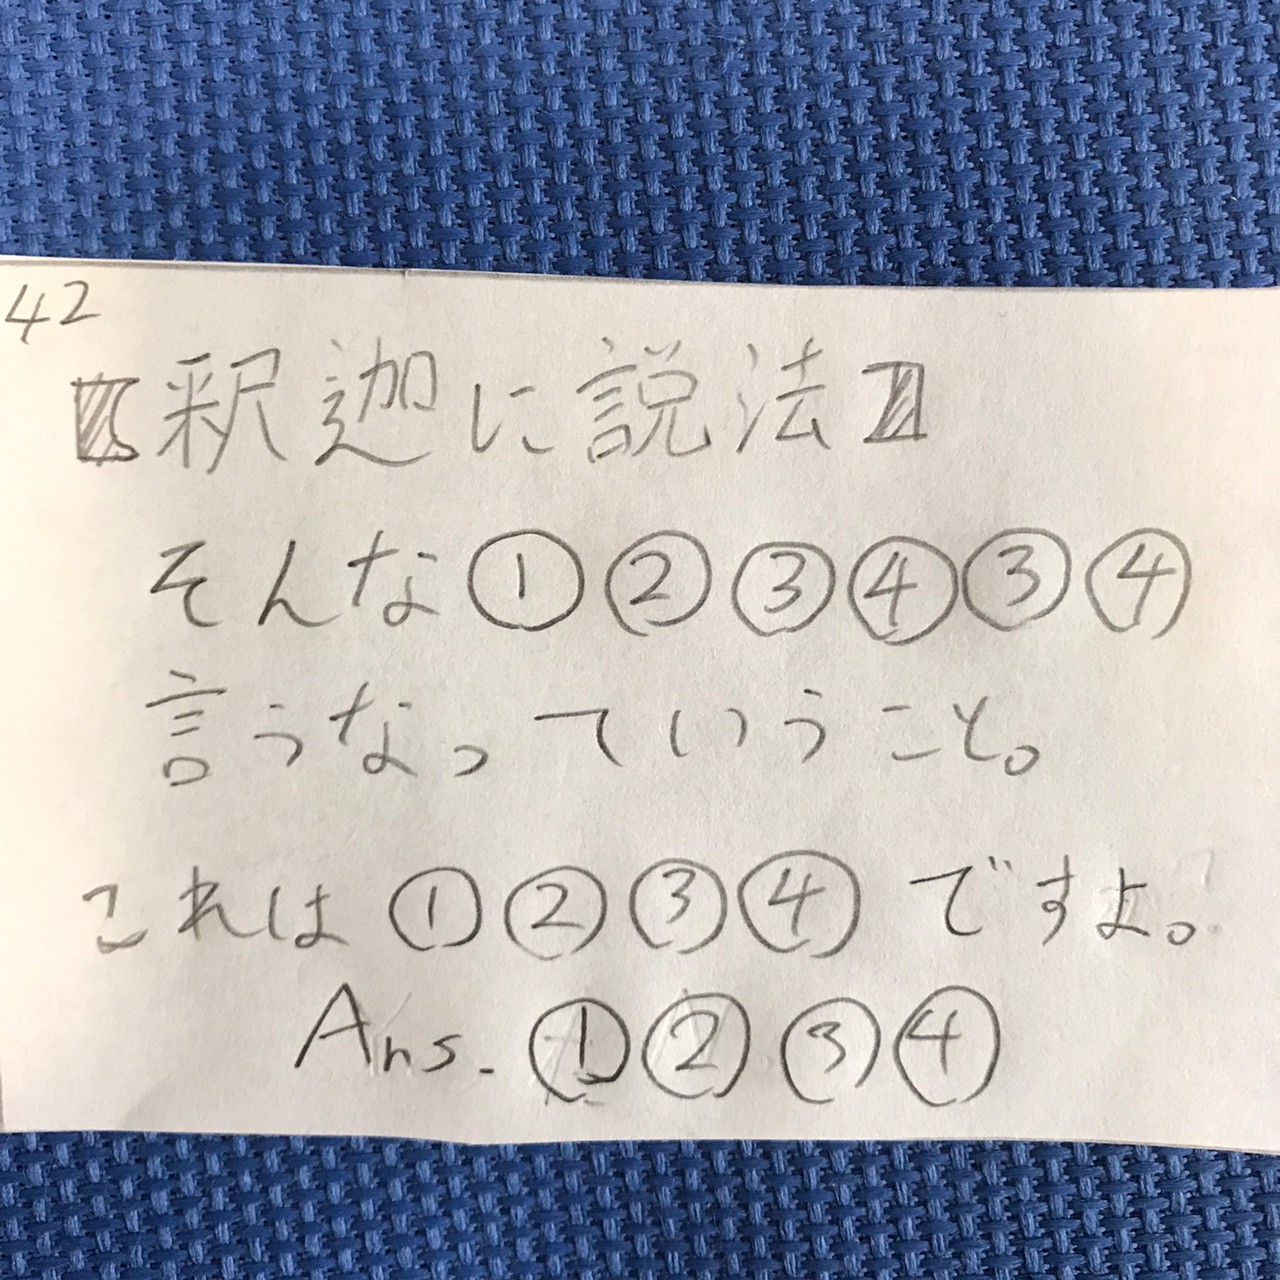 42
【釈迦に説法】
そんな①②③④③④
言うなっていうこと。
これは①②③④ですよ。
Ans. ①②③④